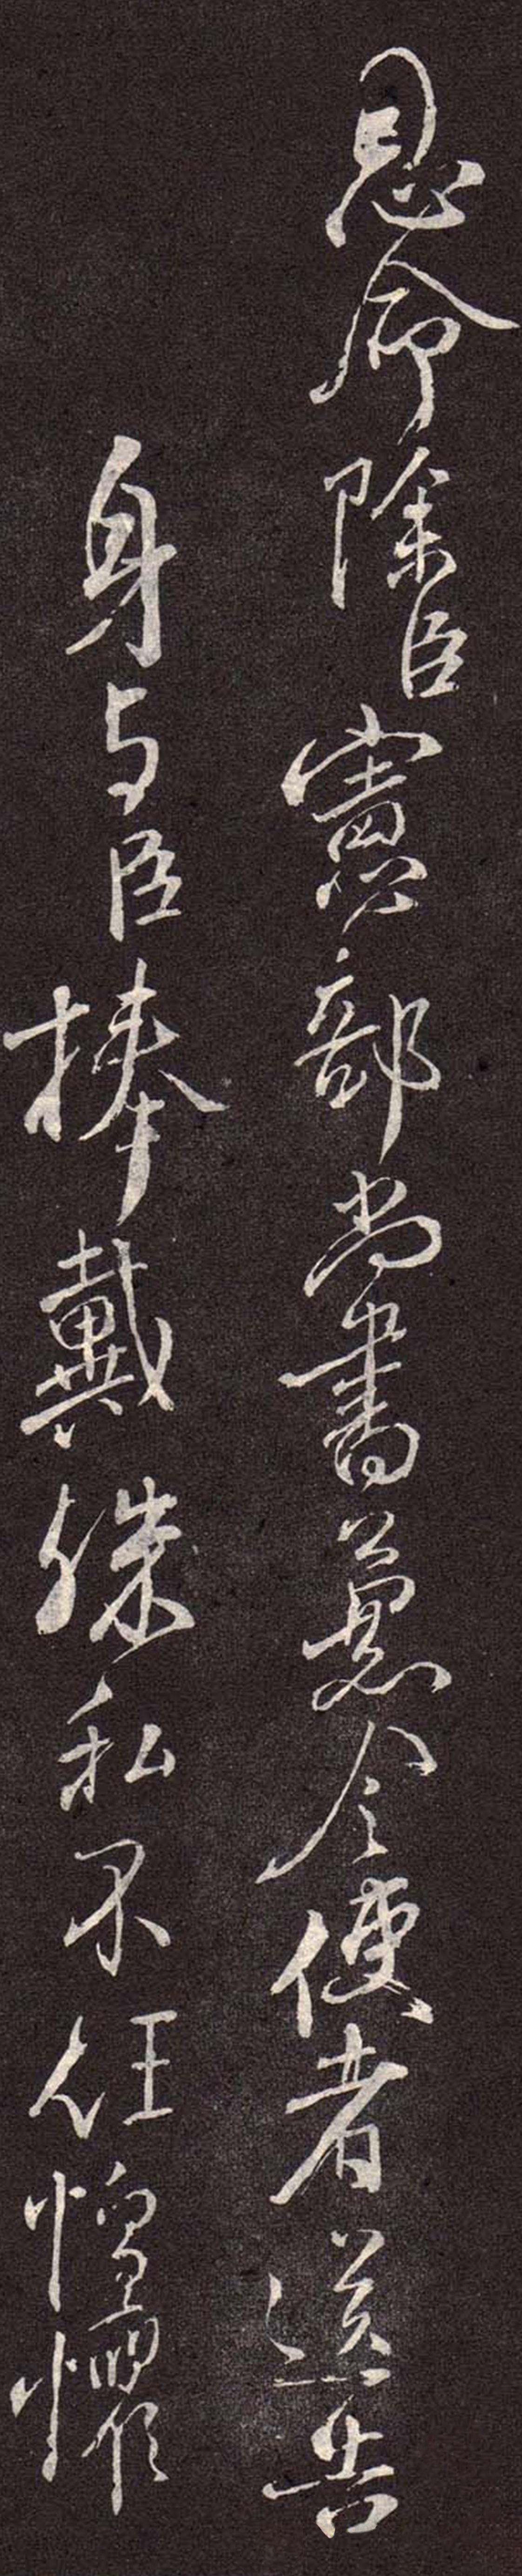 恩命除臣憲部尚書兼令使者送告
身与臣捧戴殊私不任惶懼